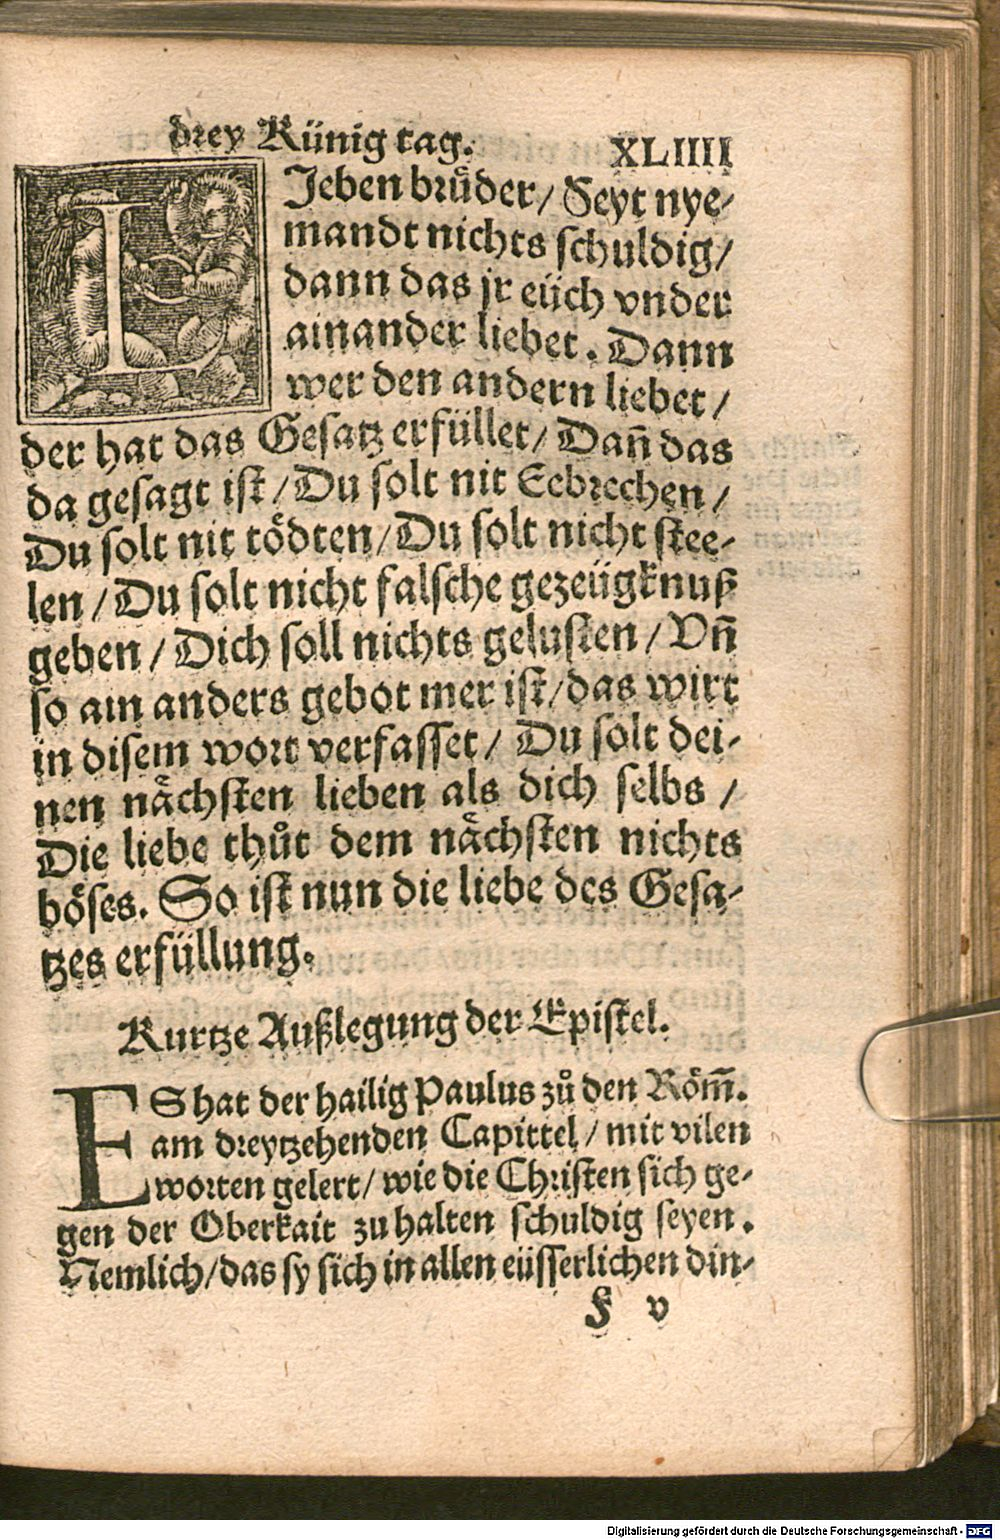 drey Künig tag. XLIIII
LIeben brůder / Seyt nye-
mandt nichts schuldig /
dann das jr eüch vnder
ainander liebet. Dann
wer den andern liebet /
der hat das Gesatz erfüllet / Dañ das
da gesagt ist / Du solt nit Eebrechen /
Du solt nit tödten / Du solt nicht stee-
len / Du solt nicht falsche gezeügknuß
geben / Dich soll nichts gelusten / Vñ
so ain anders gebot mer ist / das wirt
in disem wort verfasset / Du solt dei-
nen nächsten lieben als dich selbs /
Die liebe thůt dem nächsten nichts
böses. So ist nun die liebe des Gesa-
tzes erfüllung.
Kurtze Außlegung der Epistel.
ES hat der hailig Paulus zů den Röm̃.
am dreytzehenden Capittel / mit vilen
worten gelert / wie die Christen sich ge-
gen der Oberkait zu halten schuldig seyen.
Nemlich / das sy sich in allen eüsserlichen din-
F v
Digitalisierung gefördert durch die Deutsche Forschungsgemeinschaft - DFG